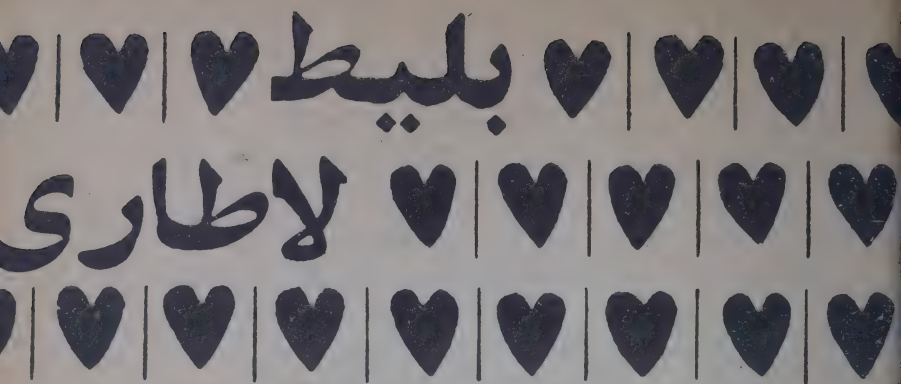 بلیط
لاطاری